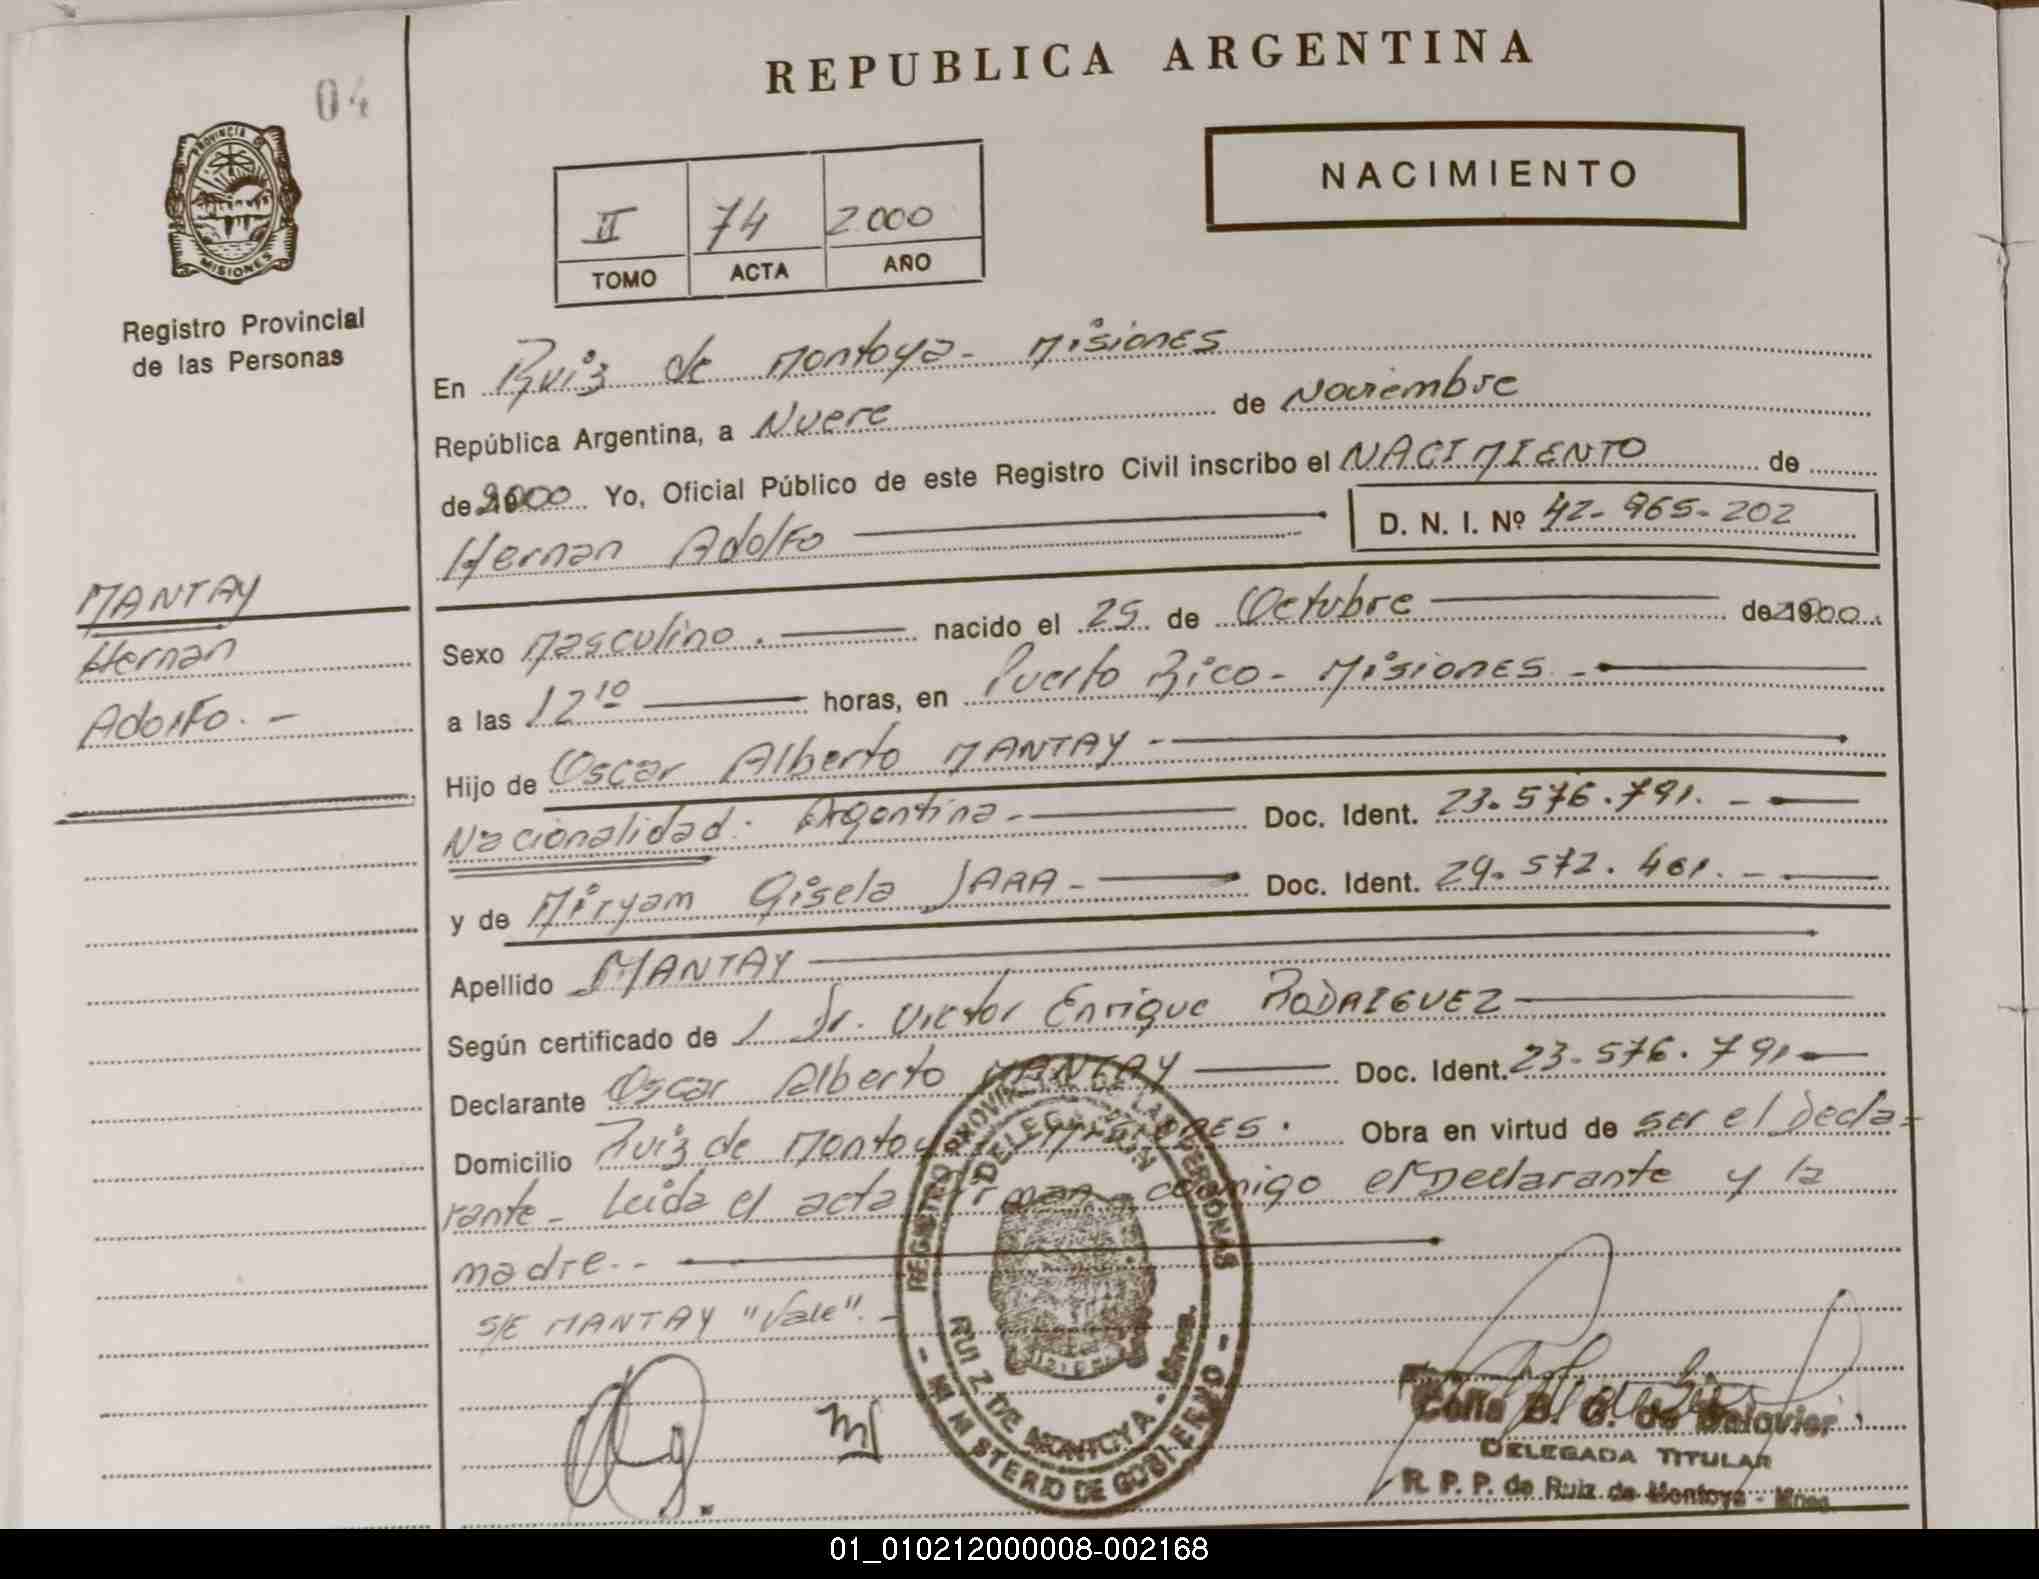 REPUBLICA ARGENTINA
04
NACIMIENTO
PROVINCIA DE
MISIONES
II 74 2.000
TOMO ACTA AÑO
Registro Provincial
de las Personas
En Ruiz de Montoya - Misiones
República Argentina, a Nueve de Noviembre
de 2000 Yo, Oficial Público de este Registro Civil inscribo el NACIMIENTO de
Hernan Adolfo D. N. I. Nº 42-965-202
MANTAY
Hernan
Adolfo. -
Sexo Masculino. nacido el 25 de Octubre de 2000.
a las 12 10 horas, en Puerto Rico - Misiones -
Hijo de Oscar Alberto MANTAY -
Nacionalidad: Argentina - Doc. Ident. 23.576.791. -
y de Miryam Gisela JARA - Doc. Ident. 29.572.461. -
Apellido MANTAY
Según certificado de / Dr. Victor Enrique RODRIGUEZ
Declarante Oscar Alberto MANTAY Doc. Ident. 23-576.791-
Domicilio Ruiz de Montoya Misiones. Obra en virtud de ser el Decla-
rante - Leida el acta firman conmigo el Declarante y la
madre. -
S/E MANTAY "Vale". -
REGISTRO PROVINCIAL DE LAS PERSONAS
DELEGACION
RUIZ DE MONTOYA - Mnes.
- MINISTERIO DE GOBIERNO -
DELEGADA TITULAR
R. P. P. de Ruiz de Montoya - Mnes.
01_010212000008-002168